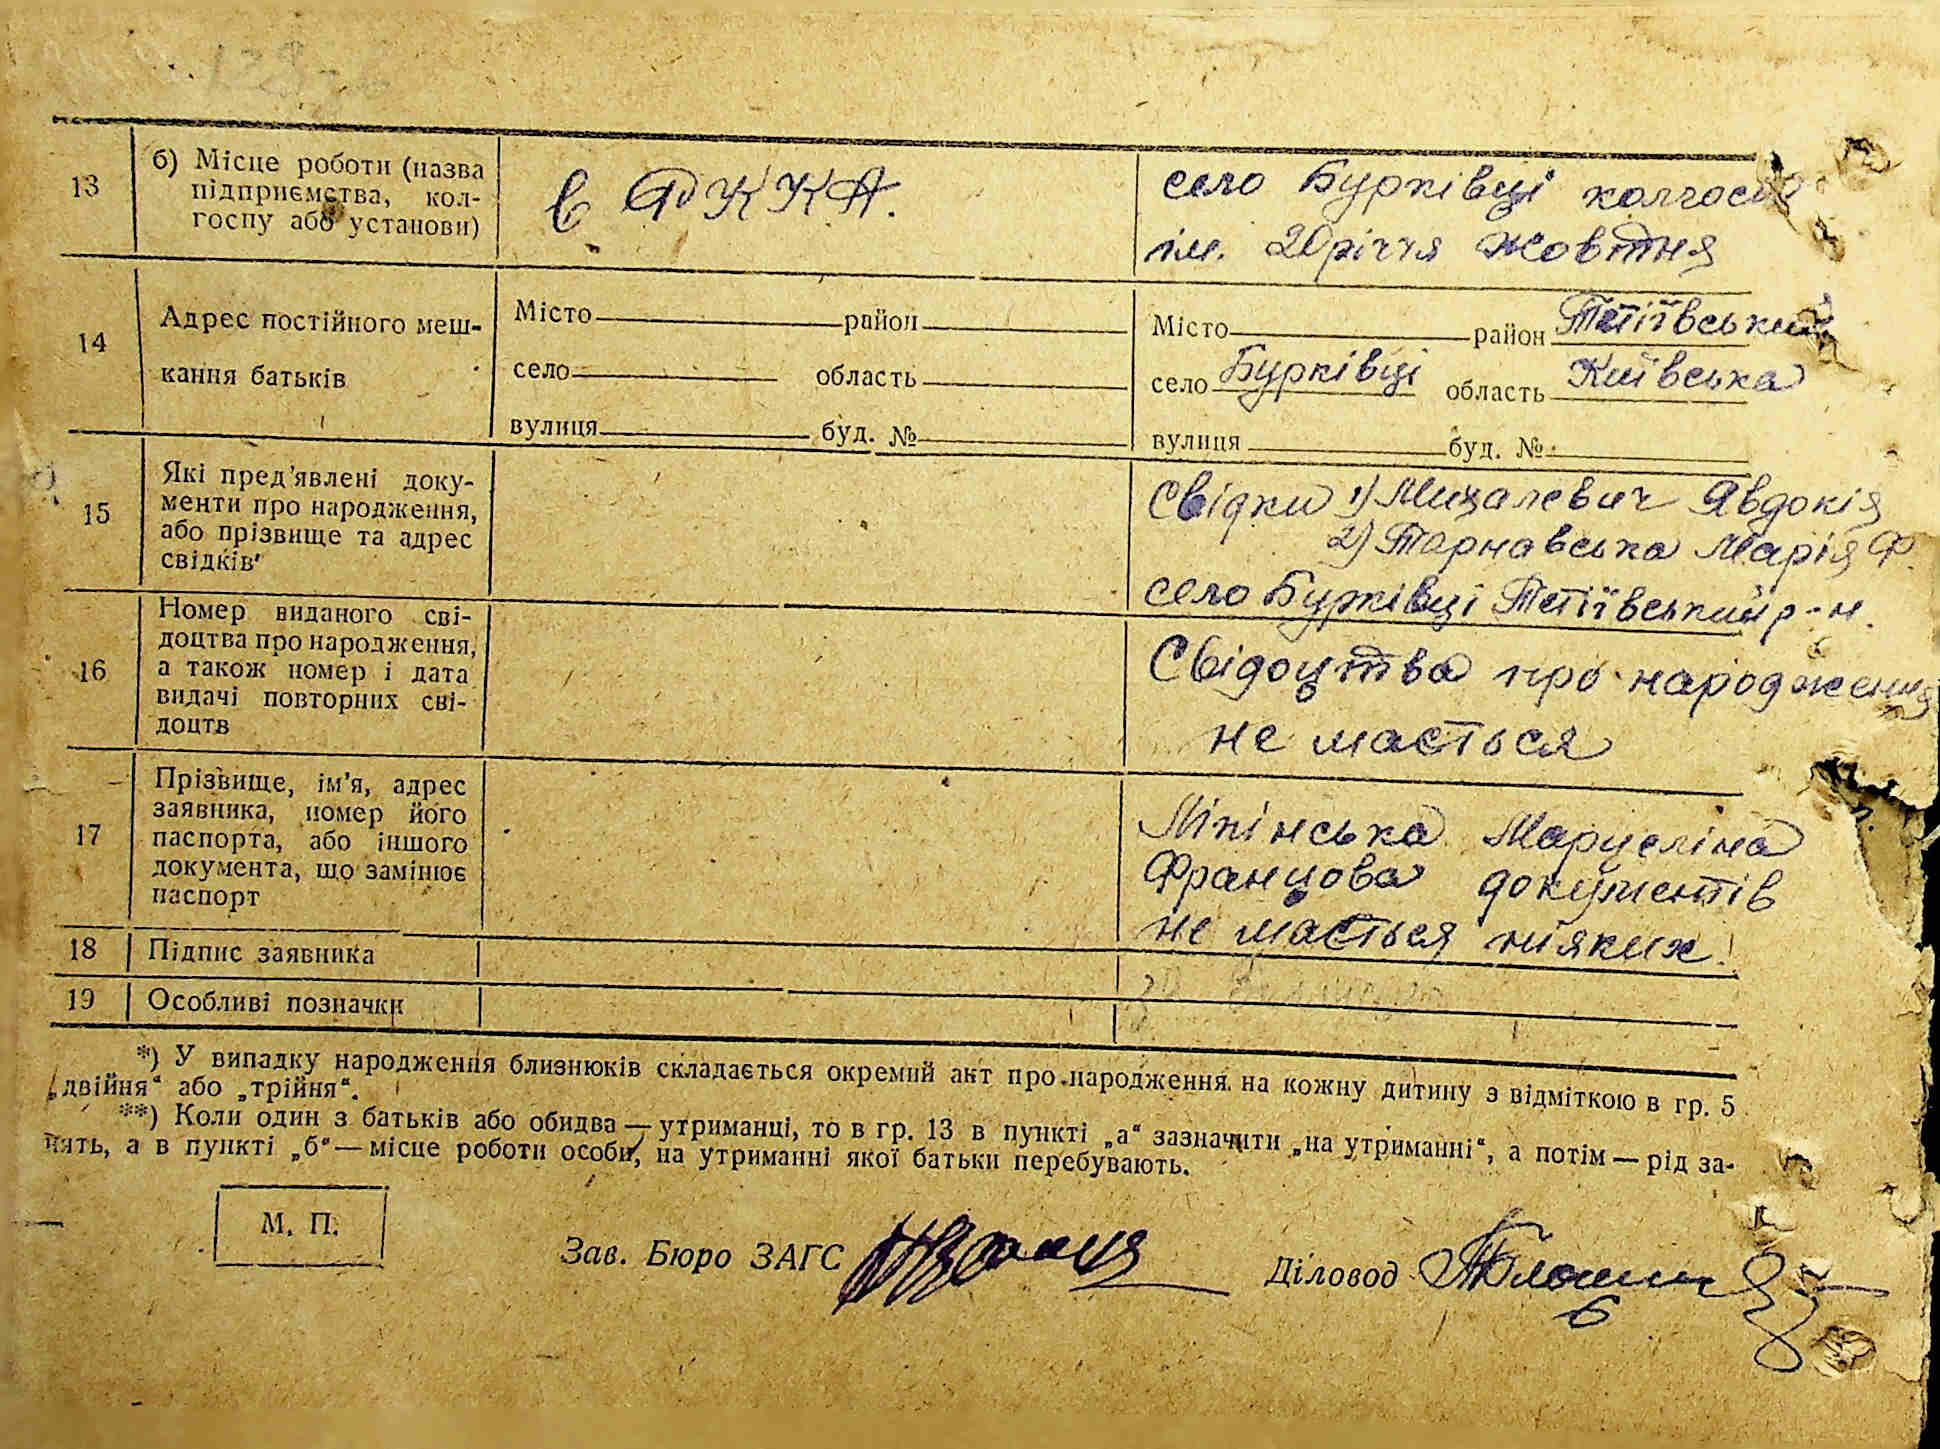 13
б) Місце роботи (назва
підприємства, кол-
госпу або установи)
в РККА.
село Бурківці колгосп
ім. 20 річчя Жовтня
14
Адрес постійного меш-
кання батьків
Місто район
село область
вулиця буд. №
Місто район Тетіївський
село Бурківці область Київська
вулиця буд. №
15
Які пред'явлені доку-
менти про народження,
або прізвище та адрес
свідків
Свідки 1) Михалевич Явдокія
2) Тарнавська Марія Ф.
село Бурківці Тетіївський р-н.
16
Номер виданого сві-
доцтва про народження,
а також номер і дата
видачі повторних сві-
доцтв
Свідоцтва про народження
не мається
17
Прізвище, ім'я, адрес
заявника, номер його
паспорта, або іншого
документа, що замінює
паспорт
Марцеліна
Францова документів
не мається ніяких.
18
Підпис заявника
19
Особливі позначки
*) У випадку народження близнюків складається окремий акт про народження на кожну дитину з відміткою в гр. 5
„двійня“ або „трійня“.
**) Коли один з батьків або обидва — утриманці, то в гр. 13 в пункті „а“ зазначити „на утриманні“, а потім — рід за-
нять, а в пункті „б“ — місце роботи особи, на утриманні якої батьки перебувають.
М. П.
Зав. Бюро ЗАГС
Діловод